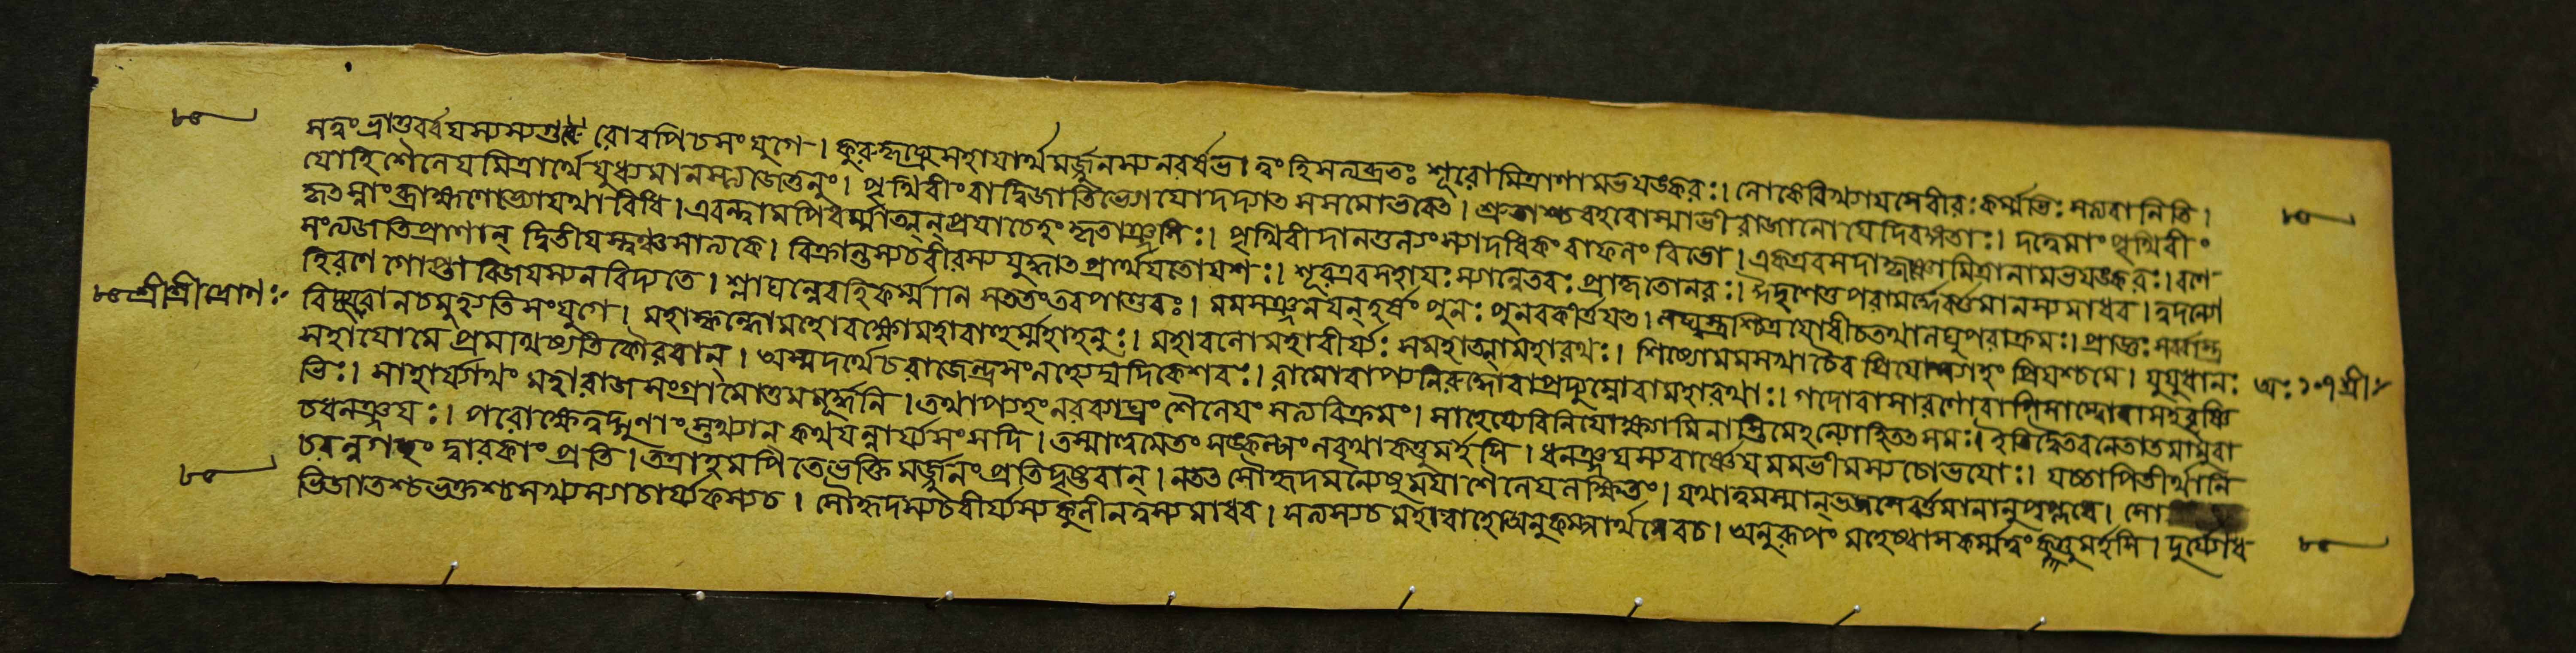 সত্বংভ্রাতুবর্বযস্যস্যগুরোরপিচসংযুগে। কুরুকৃচ্ছ্রেসহাযার্থমর্জ্জুনস্যনরর্ষভ। ত্বংহিসত্যব্রতঃ শূরোমিত্রাণামভযঙ্করঃ। লোকেবিখ্যাযসেবীরঃকর্ম্মভিঃসত্যবানিতি।
যোহিশৈনেযমিত্রার্থেযুধ্যমানস্ত্যজেত্তনুং। পৃথিবীংবাদ্বিজাতিভ্যোযোদদ্যাত্ সসমোভবেত্। শ্রুতাশ্চবহবোস্মাভীরাজানোযেদিবঙ্গতাঃ। দত্ত্বেমাংপৃথিবীং
কৃত্স্নাংব্রাহ্মণেভ্যোযথাবিধি। এবন্ত্বামপিধর্ম্মাত্মন্ প্রযাচেহংকৃতাঞ্জলিঃ। পৃথিবীদানতুল্যংস্যাদধিকংবাফলংবিভো। একএবসদাকৃষ্ণোমিত্রানামভযঙ্করঃ। রণে
সংত্যজতিপ্রাণান্ দ্বিতীযস্ত্বঞ্চসাত্যকে। বিক্রান্তস্যচবীরস্যযুদ্ধাত্প্রার্থযতোযশঃ। শূরএবসহাযঃস্যান্নেতরঃপ্রাকৃতোনরঃ। ঈদৃশেতুপরামর্দ্দেবর্ত্তমানস্যমাধব। ত্বদন্যো
হিরণেগোপ্তাবিজযস্যনবিদ্যতে। শ্লাঘন্নেবহিকর্ম্মানি সততংতবপাণ্ডবঃ। মমসঞ্জনযন্ হর্ষংপুনঃপুনরকীর্ত্তযত্। লঘ্বস্ত্রশ্চিত্রযোধীচতথালঘুপরাক্রমঃ। প্রাজ্ঞঃসর্ব্বাস্ত্র
৮৫শ্রীশ্রীদ্রোণঃ
বিচ্ছূরোনচমুহ্যতিসংযুগে। মহাস্কন্ধোমহোরস্কোমহাবাহুর্ম্মহাহনুঃ। মহাবলোমহাবীর্য্যঃসমহাত্মামহারথঃ। শিষ্যোমমসখাচৈব প্রিযোস্যাহং প্রিযশ্চমে। যুযুধানঃ
অঃ১০৭শ্রী
সহাযোমে প্রমথিষ্যতিকৌরবান্। অস্মদর্থেচরাজেন্দ্রসংনহ্যেদ্যদিকেশবঃ। রামোবাপ্যনিরুদ্ধোবাপ্রদ্যুম্নোবামহারথাঃ। গদোবাসারণোবাপিসাম্বোবাসহবৃষ্ণি
ভিঃ। সাহায্যার্থং মহারাজসংগ্রামোত্তমমূর্দ্ধনি। তথাপ্যহংনরব্যাঘ্রং শৈনেযং সত্যবিক্রমং। সাহায্যেবিনিযোক্ষ্যামিনাস্তিমেহন্যোহিতত্সমঃ। ইতিদ্বৈতবনেতাতমামুবা
চধনঞ্জযঃ। পরোক্ষেত্বদ্গুণাংস্তথ্যান্ কথযন্নার্য্যসংসদি। তস্যত্বমেতং সঙ্কল্পংনবৃথাকর্ত্তুমর্হসি। ধনঞ্জযস্যবার্ষ্ণেযমমভীমস্যচোভযোঃ। যচ্চাপিতীর্থানি
চরন্নগচ্ছং দ্বারকাং প্রতি। তত্রাহমপি তেভক্তিমর্জ্জুনং প্রতিদৃষ্টবান্। নতত্সৌহৃদমন্যেষুমযাশৈনেযলক্ষিতং। যথাত্বমস্মান্ভজসেবর্ত্তমানানুপপ্লবে। সো
ভিজাতশ্চভক্তশ্চসখ্যস্যাচার্য্যকস্যচ। সৌহৃদস্যচবীর্য্যস্যকুলীনত্বস্যমাধব। সত্যস্যচমহাবাহোঅনুকম্পার্থমেবচ। অনুরূপং মহেষ্বাসকর্ম্মত্বংকর্ত্তুমর্হসি। দুর্য্যোধ
৮৫
৮৫
৮৫
৮৫